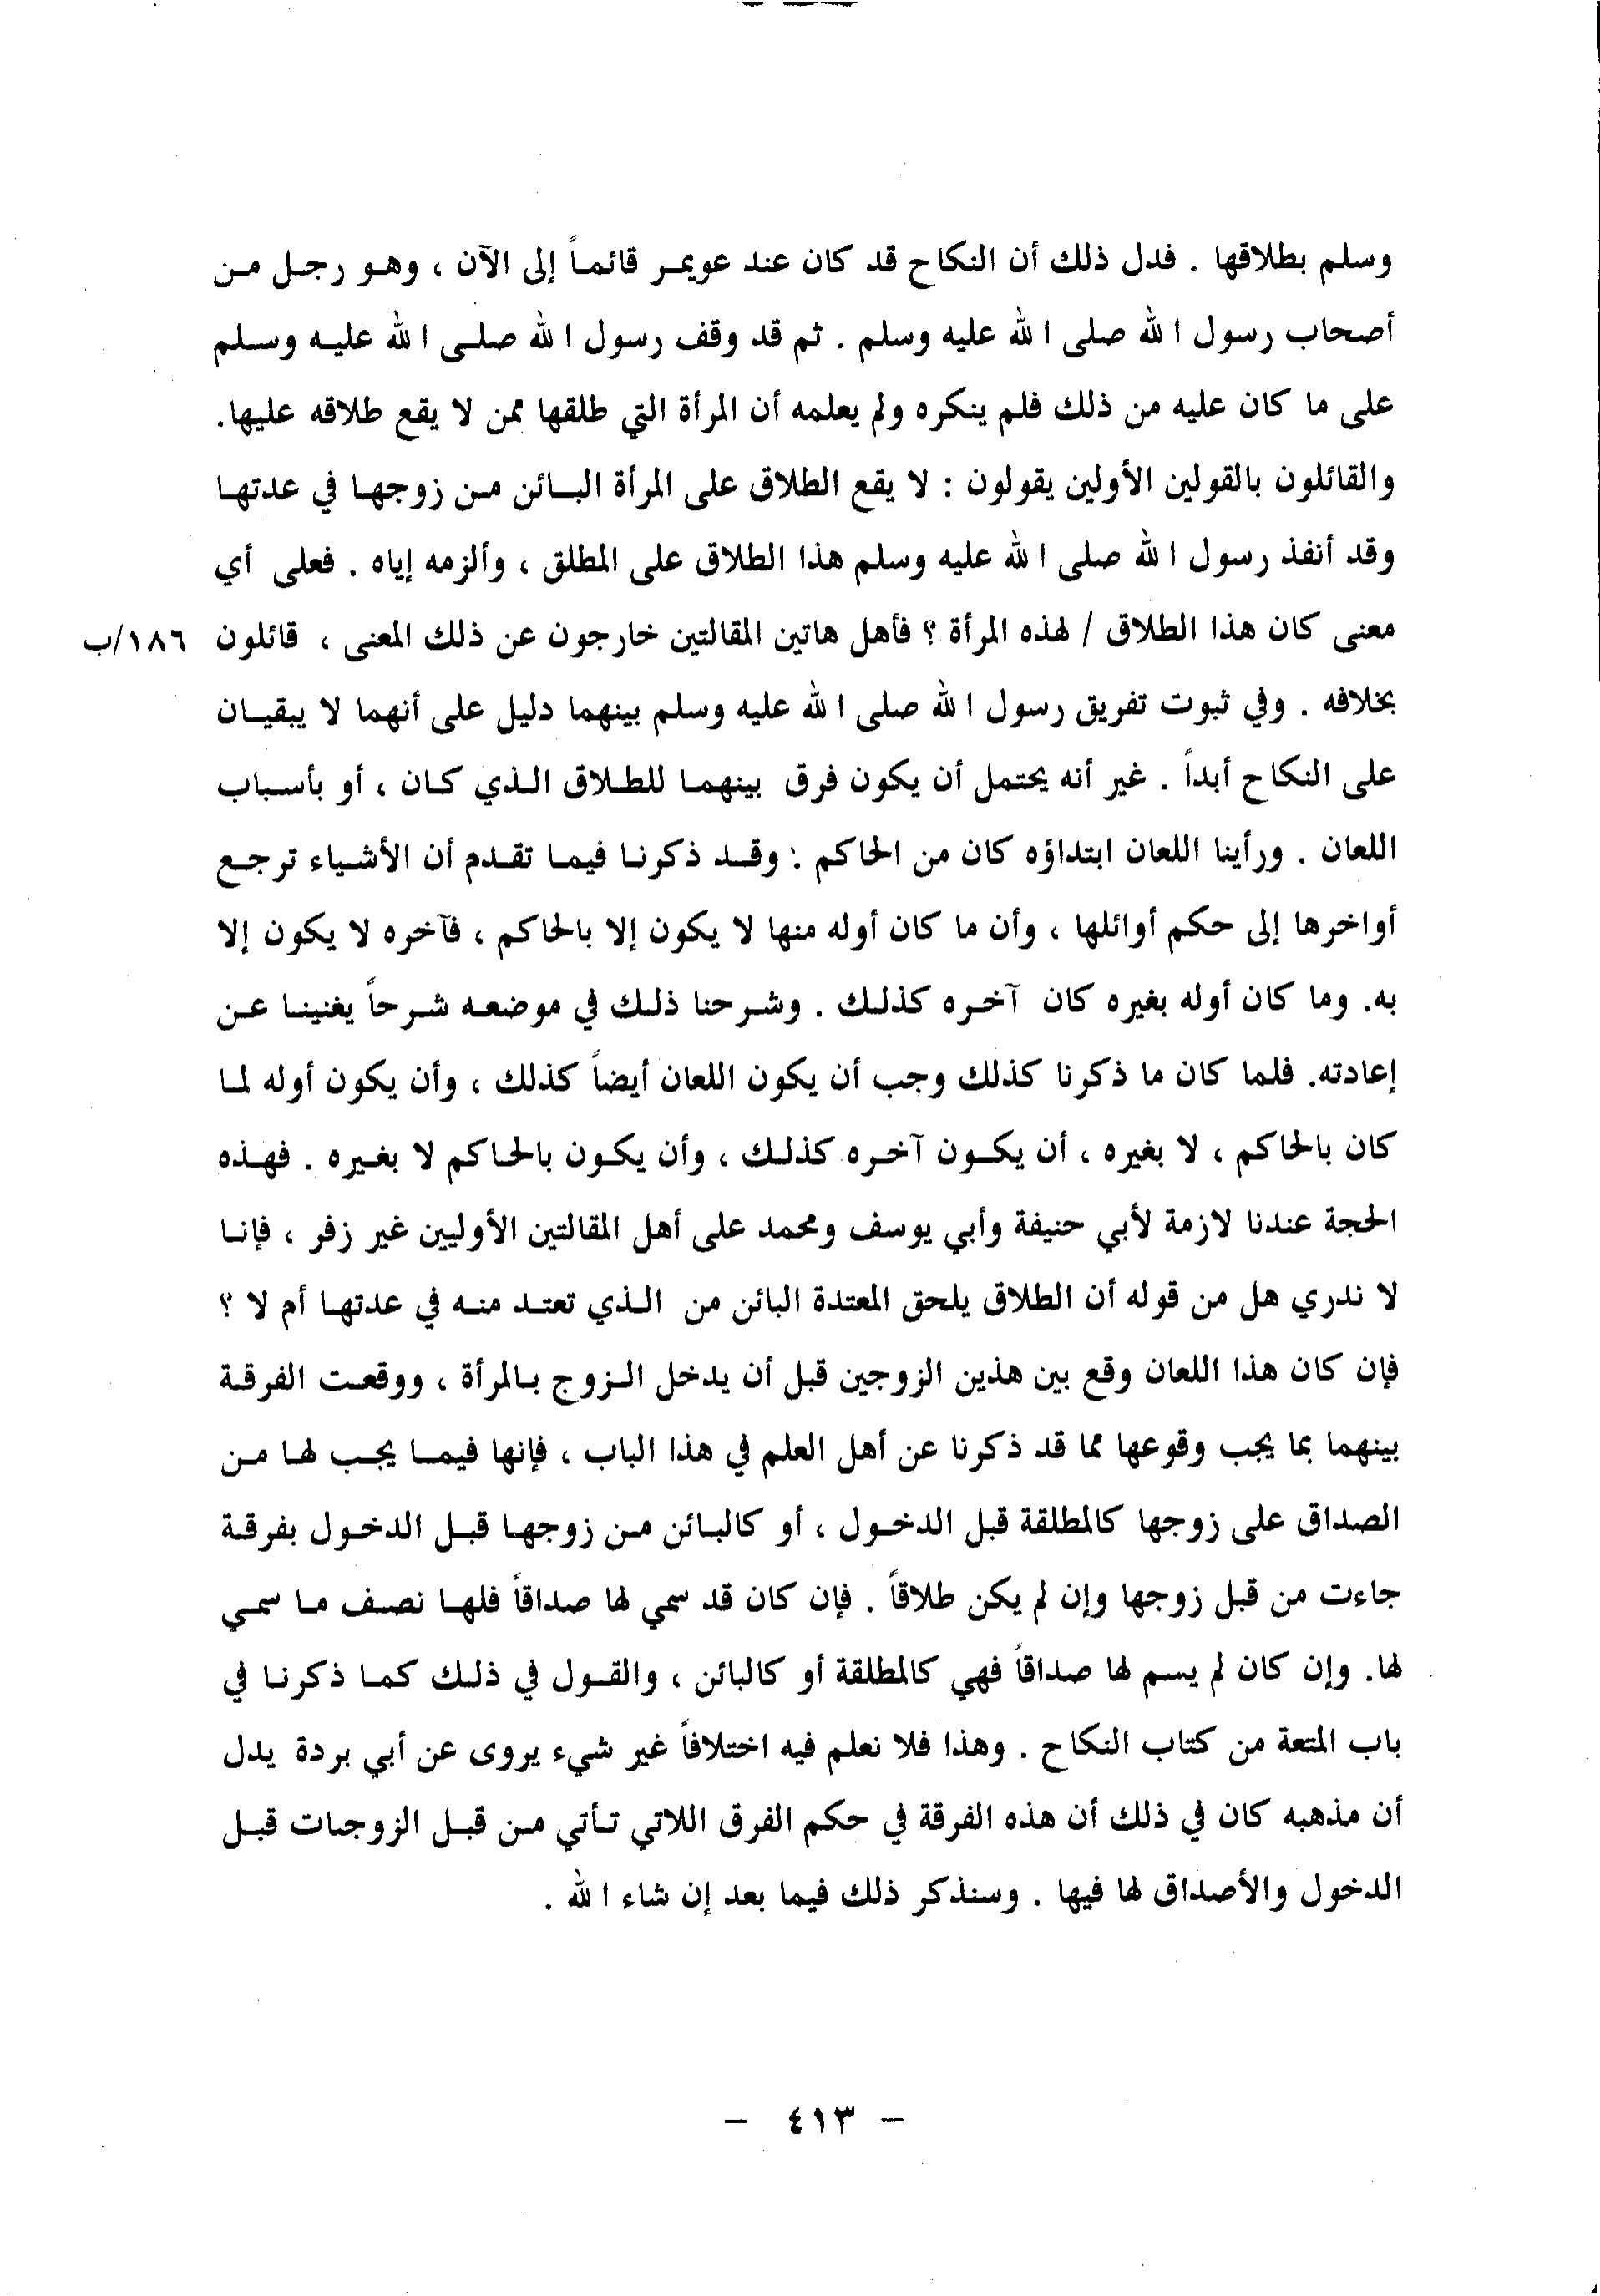 وسلم بطلاقها . فدل ذلك أن النكاح قد كان عند عويمر قائماً إلى الآن ، وهو رجل من
أصحاب رسول الله صلى الله عليه وسلم . ثم قد وقف رسول الله صلى الله عليه وسلم
على ما كان عليه من ذلك فلم ينكره ولم يعلمه أن المرأة التي طلقها ممن لا يقع طلاقه عليها.
والقائلون بالقولين الأولين يقولون : لا يقع الطلاق على المرأة البائن من زوجها في عدتها
وقد أنفذ رسول الله صلى الله عليه وسلم هذا الطلاق على المطلق ، وألزمه إياه . فعلى أي
معنى كان هذا الطلاق / لهذه المرأة ؟ فأهل هاتين المقالتين خارجون عن ذلك المعنى ، قائلون ١٨٦/ب
بخلافه . وفي ثبوت تفريق رسول الله صلى الله عليه وسلم بينهما دليل على أنهما لا يبقيان
على النكاح أبداً . غير أنه يحتمل أن يكون فرق بينهما للطلاق الذي كان ، أو بأسباب
اللعان . ورأينا اللعان ابتداؤه كان من الحاكم : وقد ذكرنا فيما تقدم أن الأشياء ترجع
أواخرها إلى حكم أوائلها ، وأن ما كان أوله منها لا يكون إلا بالحاكم ، فآخره لا يكون إلا
به. وما كان أوله بغيره كان آخره كذلك . وشرحنا ذلك في موضعه شرحاً يغنينا عن
إعادته. فلما كان ما ذكرنا كذلك وجب أن يكون اللعان أيضاً كذلك ، وأن يكون أوله لما
كان بالحاكم ، لا بغيره ، أن يكون آخره كذلك ، وأن يكون بالحاكم لا بغيره . فهذه
الحجة عندنا لازمة لأبي حنيفة وأبي يوسف ومحمد على أهل المقالتين الأوليين غير زفر ، فإنا
لا ندري هل من قوله أن الطلاق يلحق المعتدة البائن من الذي تعتد منه في عدتها أم لا ؟
فإن كان هذا اللعان وقع بين هذين الزوجين قبل أن يدخل الزوج بالمرأة ، ووقعت الفرقة
بينهما بما يجب وقوعها مما قد ذكرنا عن أهل العلم في هذا الباب ، فإنها فيما يجب لها من
الصداق على زوجها كالمطلقة قبل الدخول ، أو كالبائن من زوجها قبل الدخول بفرقة
جاءت من قبل زوجها وإن لم يكن طلاقاً . فإن كان قد سمي لها صداقاً فلها نصف ما سمي
لها. وإن كان لم يسم لها صداقاً فهي كالمطلقة أو كالبائن ، والقول في ذلك كما ذكرنا في
باب المتعة من كتاب النكاح . وهذا فلا نعلم فيه اختلافاً غير شيء يروى عن أبي بردة يدل
أن مذهبه كان في ذلك أن هذه الفرقة في حكم الفرق اللاتي تأتي من قبل الزوجات قبل
الدخول والأصداق لها فيها . وسنذكر ذلك فيما بعد إن شاء الله .
– ٤١٣ –